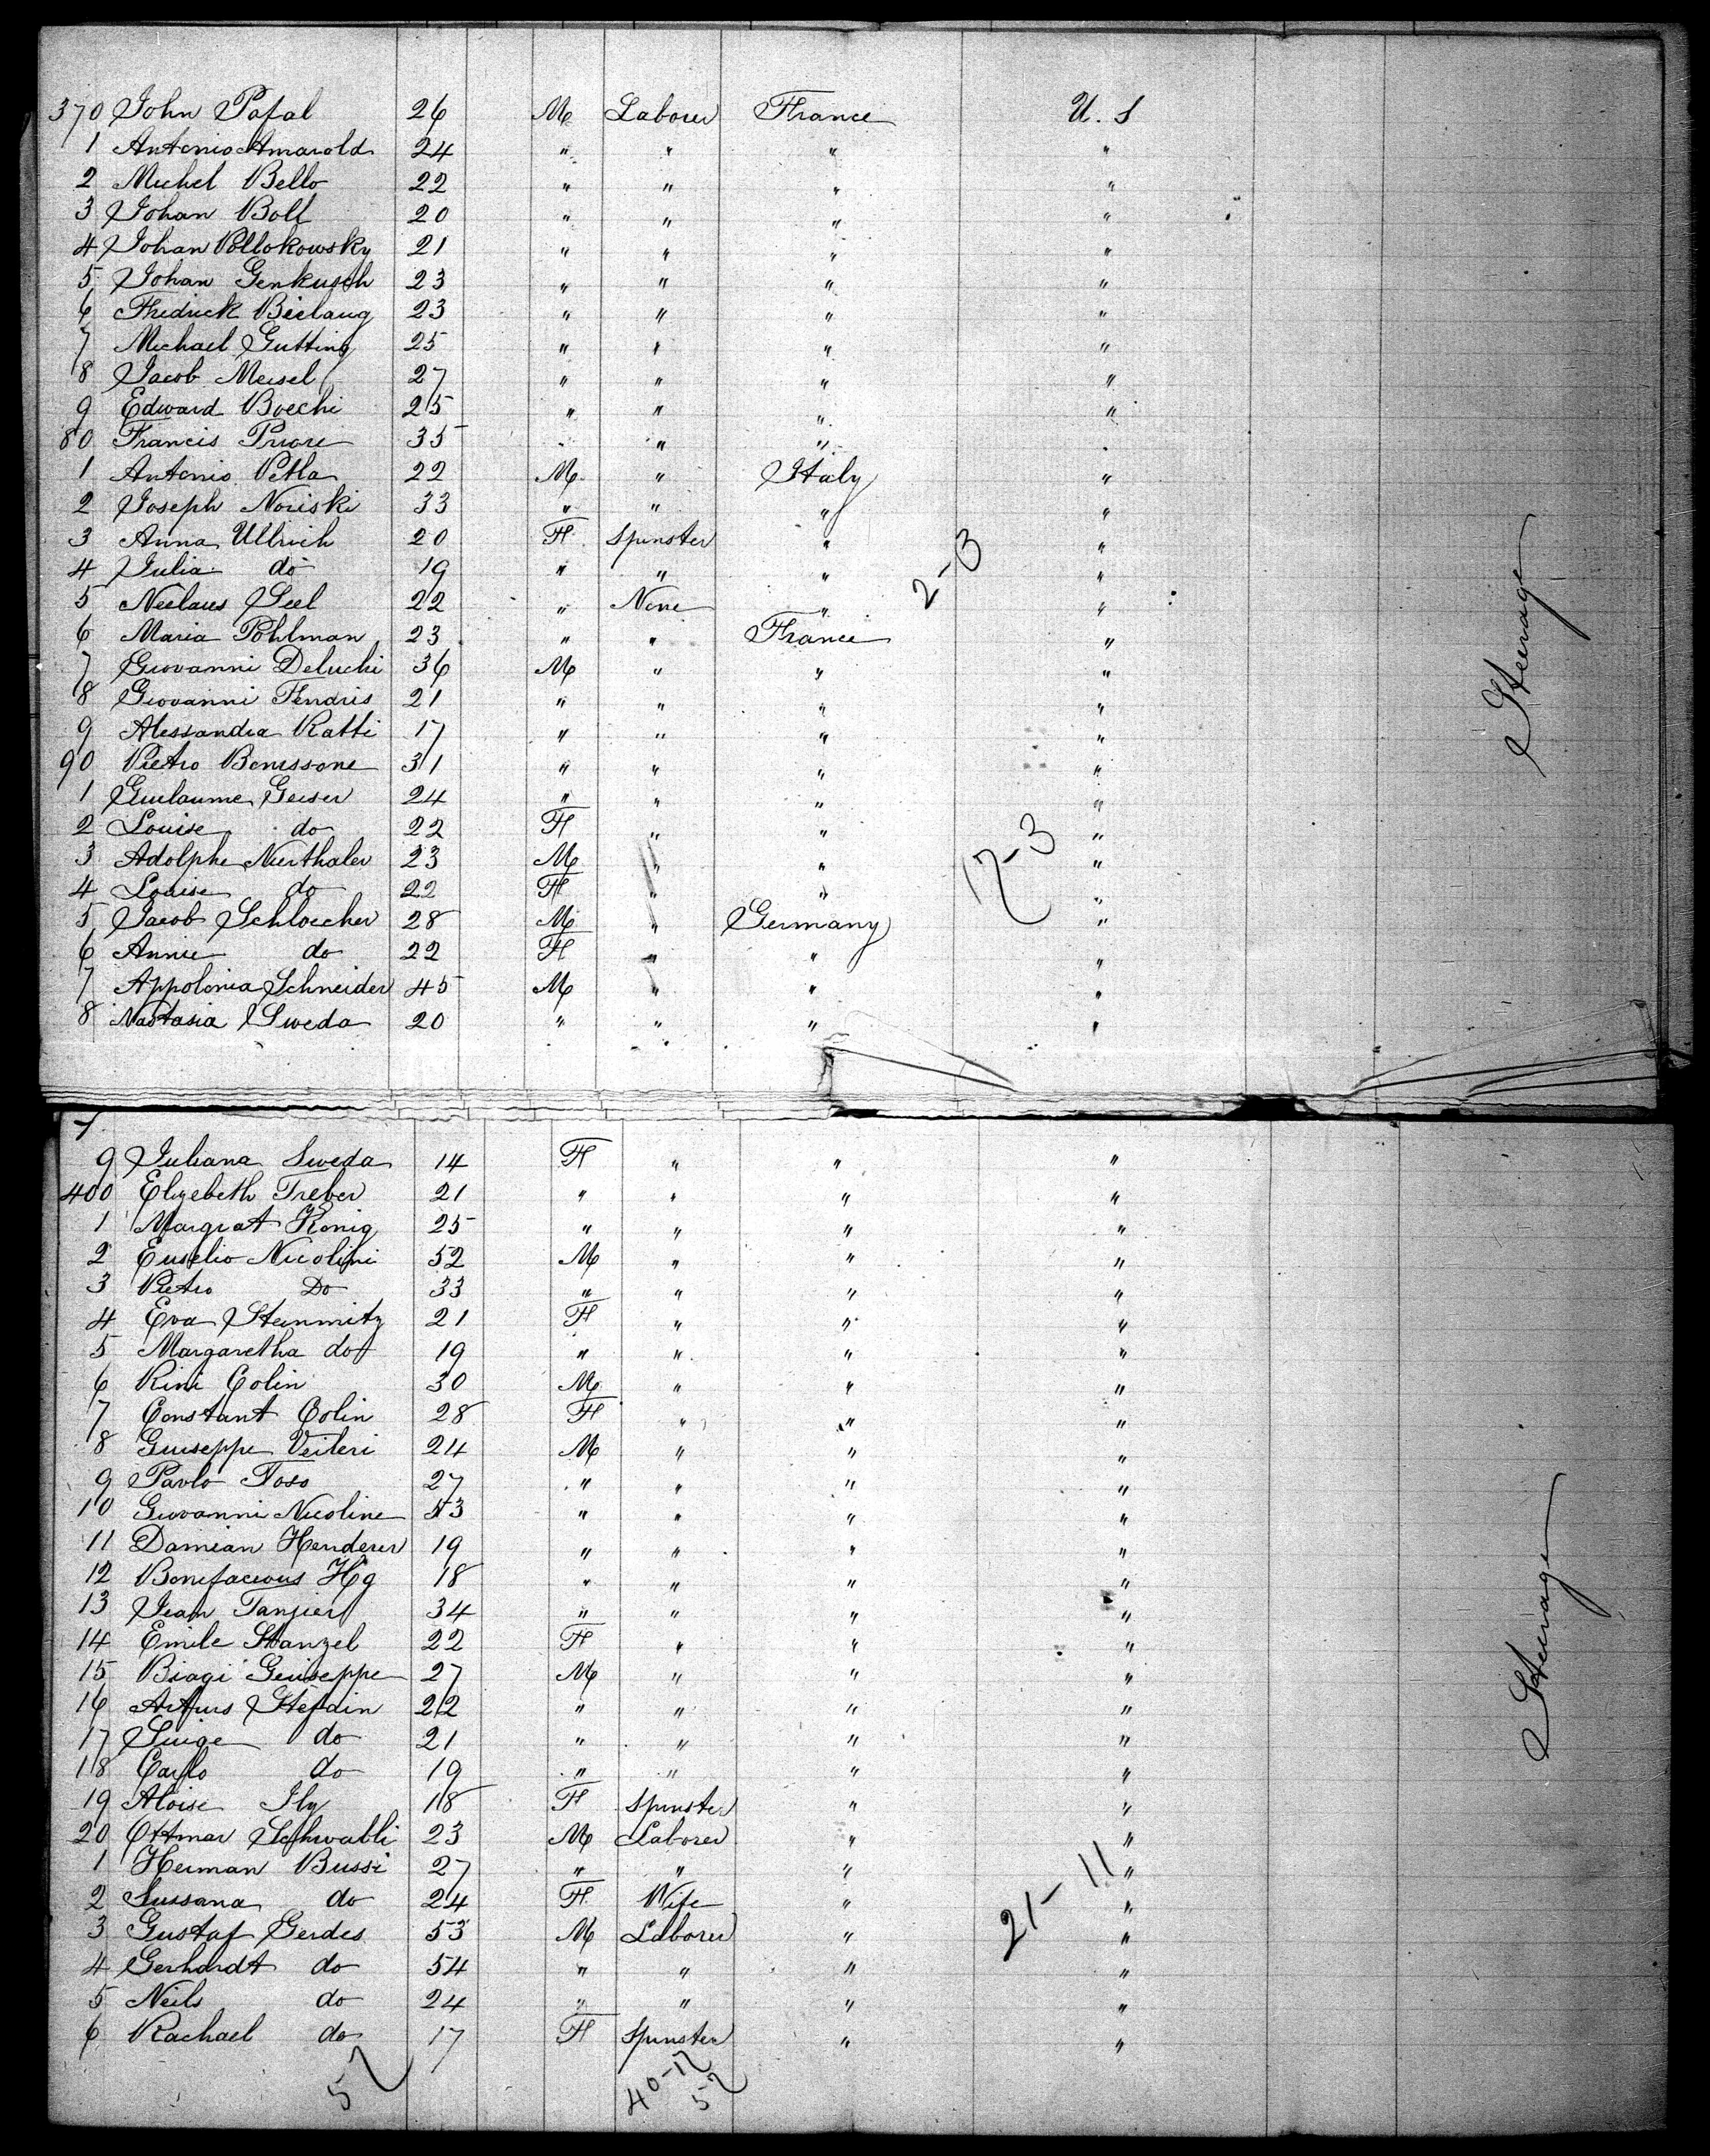 370 John Pafal 26 M Laborer France U. S
1 Antonio Amarold 24 " " " "
2 Michel Bello 22 " " " "
3 Johan Boll 20 " " " "
4 Johan Pollokowsky 21 " " " "
5 Johan Genkusch 23 " " " "
6 Fredrick Bielaug 23 " " " "
7 Michael Gutting 25 " " " "
8 Jacob Meisel 27 " " " "
9 Edward Boechi 25 " " " "
80 Francis Priori 35 " " " "
1 Antonio Petla 22 M " Italy "
2 Joseph Noriski 33 " " " "
3 Anna Ullrich 20 F Spinster " "
4 Julia do 19 " " " "
2-3
5 Neclaus Seel 22 " None " "
6 Maria Pohlman 23 " " France "
7 Giovanni Deluchi 36 M " " "
8 Giovanni Fendris 21 " " " "
Steerage
9 Alessandra Ratti 17 " " " "
90 Pietro Benissone 31 " " " "
1 Guilaume Geiser 24 " " " "
2 Louise do 22 F " " "
3 Adolphe Nurthaler 23 M " " "
17-3
4 Louise do 22 F " " "
5 Jacob Schloecher 28 M " Germany "
6 Annie do 22 F " " "
7 Appolonia Schneider 45 M " " "
8 Nastasia Sweda 20 " " " "
9 Juliana Sweda 14 F " " "
400 Elizebeth Treber 21 " " " "
1 Margrat König 25 " " " "
2 Euselio Nicolini 52 M " " "
3 Pietro Do 33 " " " "
4 Eva Steinmitz 21 F " " "
5 Margaretha do 19 " " " "
6 Rini Colin 30 M " " "
7 Constant Colin 28 F " " "
8 Guiseppe Veileri 24 M " " "
9 Paolo Toso 27 " " " "
10 Giovanni Nicoline 53 " " " "
11 Damian Henderer 19 " " " "
12 Bonifacious Hg 18 " " " "
13 Jean Tanjier 34 " " " "
14 Emile Stanzel 22 F " " "
Steerage
15 Biagi Geuseppe 27 M " " "
16 Arturs Stefain 22 " " " "
17 Luige do 21 " " " "
18 Carlo do 19 " " " "
19 Aloise Ily 18 F Spinster " "
20 Ottmar Schwabli 23 M Laborer " "
1 Herman Bussi 27 " " " "
2 Sussana do 24 F Wife " "
21-11
3 Gustaf Gerdes 53 M Laborer " "
4 Gerhardt do 54 " " " "
5 Neils do 24 " " " "
6 Rachael do 17 F Spinster " "
57 40-17
57